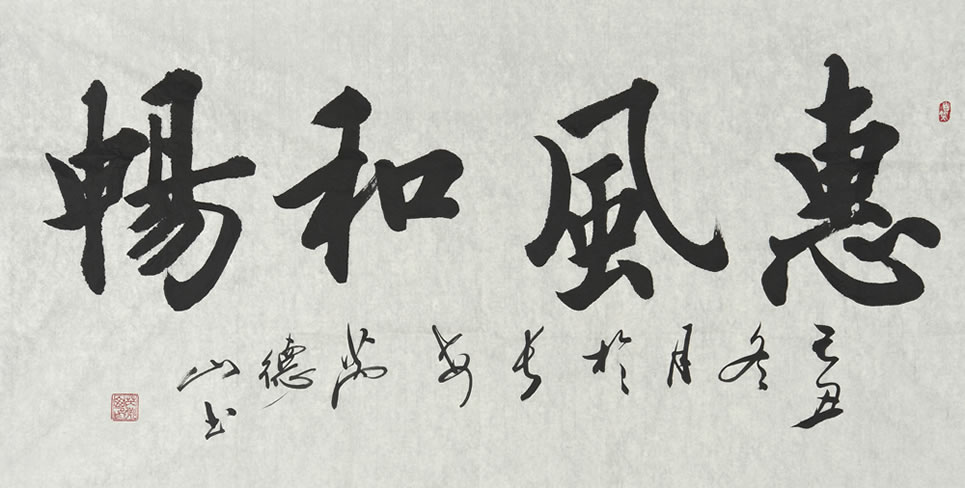 惠風和暢
丑冬月於長安
德山书